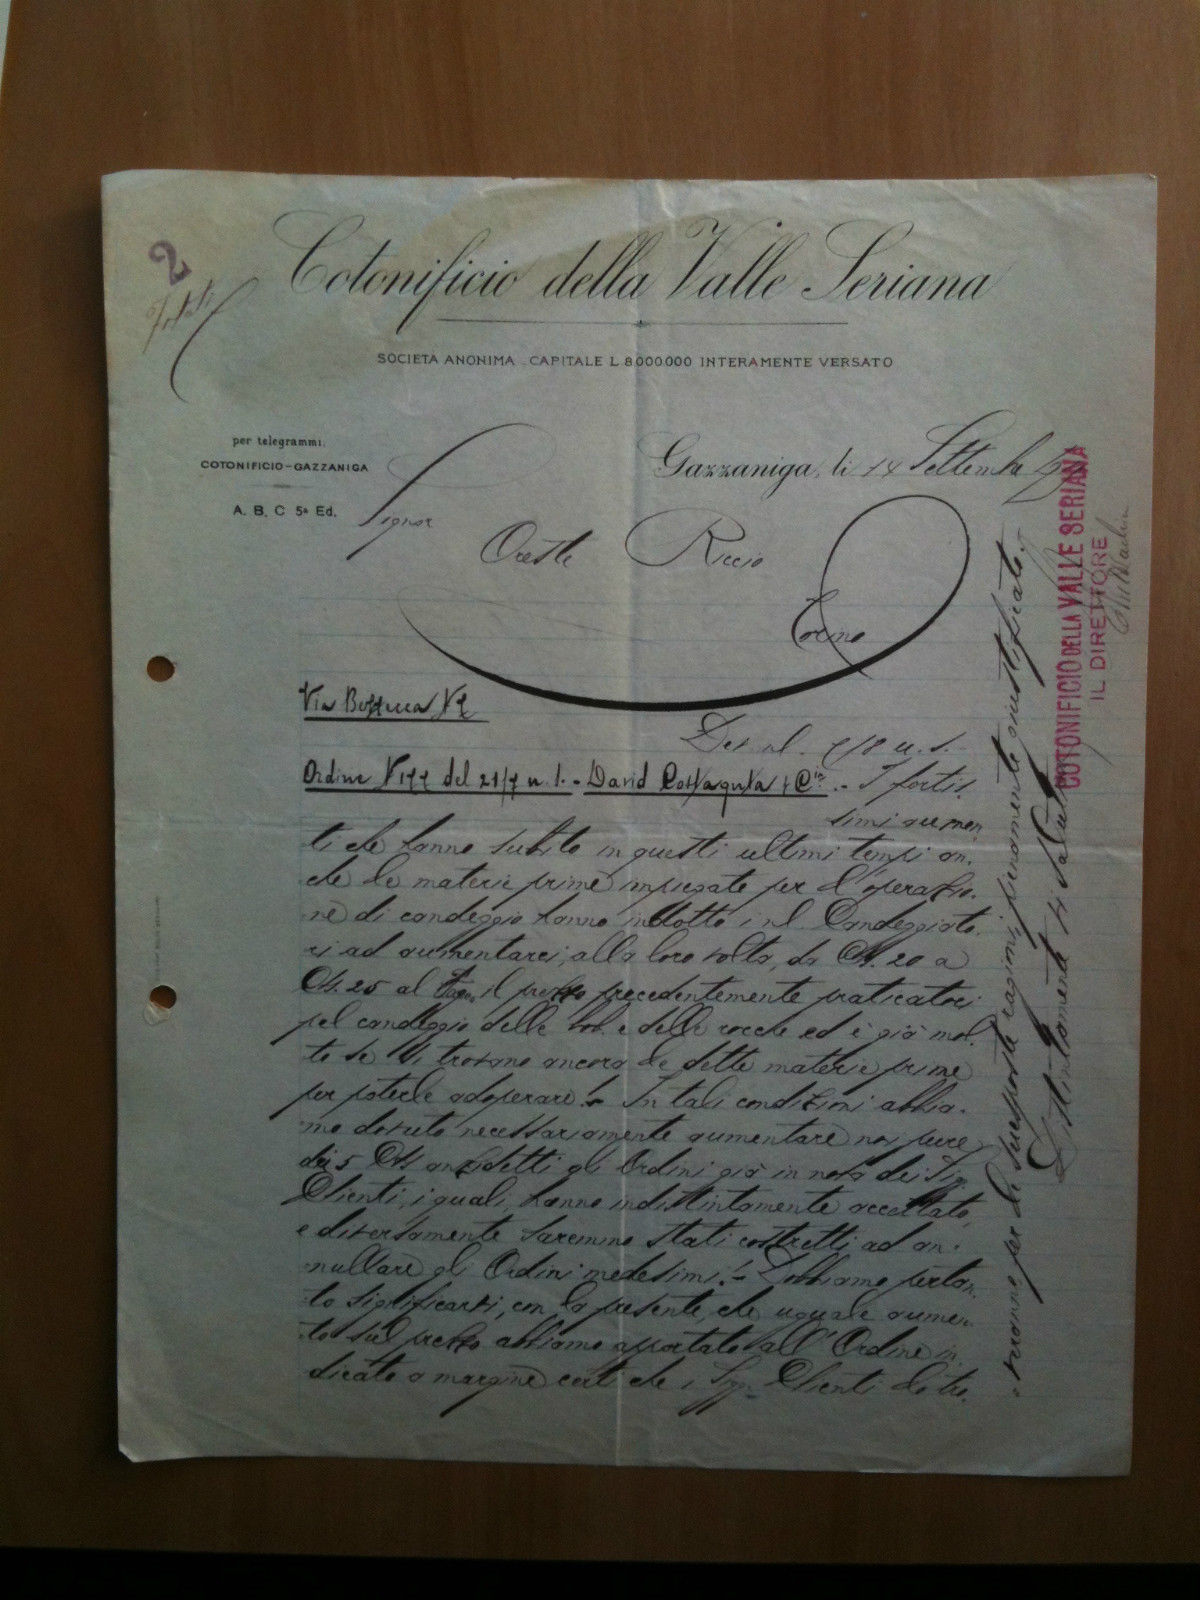 2
Cotonificio della Valle Seriana
SOCIETA ANONIMA - CAPITALE L. 8.000.000 INTERAMENTE VERSATO
per telegrammi.
COTONIFICIO-GAZZANIGA
A. B. C 5ª Ed.
Gazzaniga, li 14 Settembre
Signor
Oreste Riccio
Torino
Via
Ordine N 177 del 21/7 u. s. - David Costaguta & Cia. - I fortis
simi aumen
ti che hanno subito in questi ultimi tempi an.
che le materie prime impiegate per l'operazio.
ne di candeggio hanno indotto i nl. Candeggiato.
ri ad aumentarci, alla loro volta, da Ct. 20 a
Ct. 25 al il prezzo precedentemente praticatoci
pel candeggio delle bob. e delle rocche ed è già mol.
to se si trovano ancora le dette materie prime
per poterle adoperare! - In tali condizioni abbia.
mo dovuto necessariamente aumentare noi pure
dei 5 Ct. anzidetti gli Ordini già in nota dei Sig.
Clienti, i quali, hanno indistintamente accettato,
e diversamente saremmo stati costretti ad an.
nullare gli Ordini medesimi! - Dobbiamo pertan.
to significarvi, con la presente, che uguale aumen.
to sul prezzo abbiamo apportato all'Ordine in.
dicato a margine certi che i Sigg. Clienti lo tro.
veranno per le suesposte ragioni, pienamente giustificato.
Distintamente Vi salutiamo
COTONIFICIO DELLA VALLE SERIANA
IL DIRETTORE